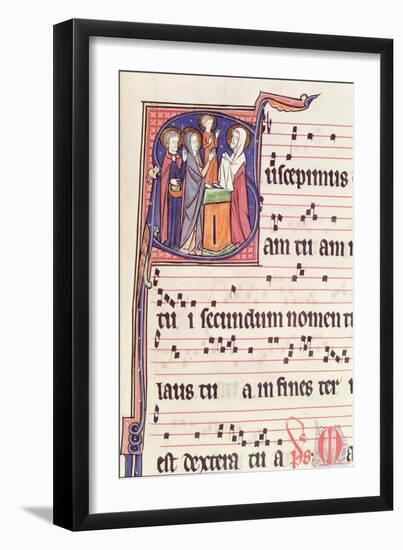 Suscepimus
am tu am i
tu i secundum nomen tu
laus tu a in fines ter r
est dextera tu a ps. Ma